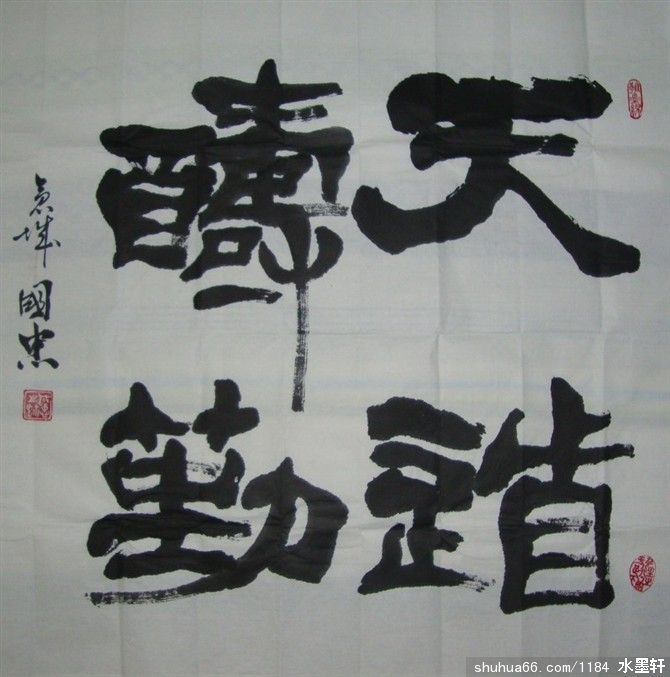 天道
醻勤
城 國忠
shuhua66.com/1184 水墨轩